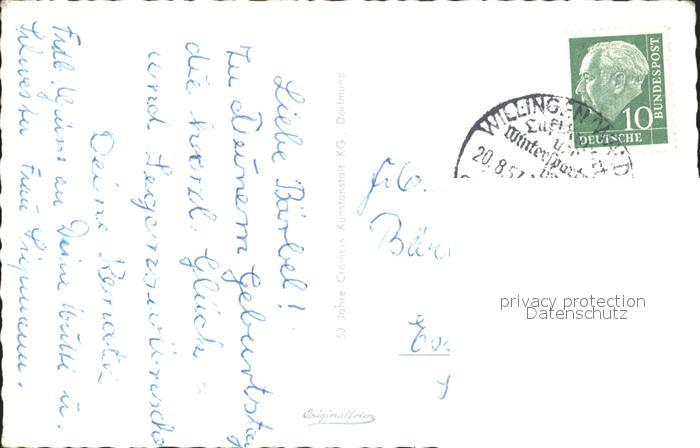 Liebe Bärbel!
Zu Deinem Geburtstag
die herzl. Glück=
und Segenswünsche
Deine Renate
Frdl. Grüsse an Deine Mutti u.
Schwester Frau
50 Jahre Cramers Kunstanstalt KG. Dortmund
Originalfoto
10
DEUTSCHE
BUNDESPOST
WILLINGEN
Luft
u
Wintersport
20.8.57
Frl.
Bär
privacy protection
Datenschutz